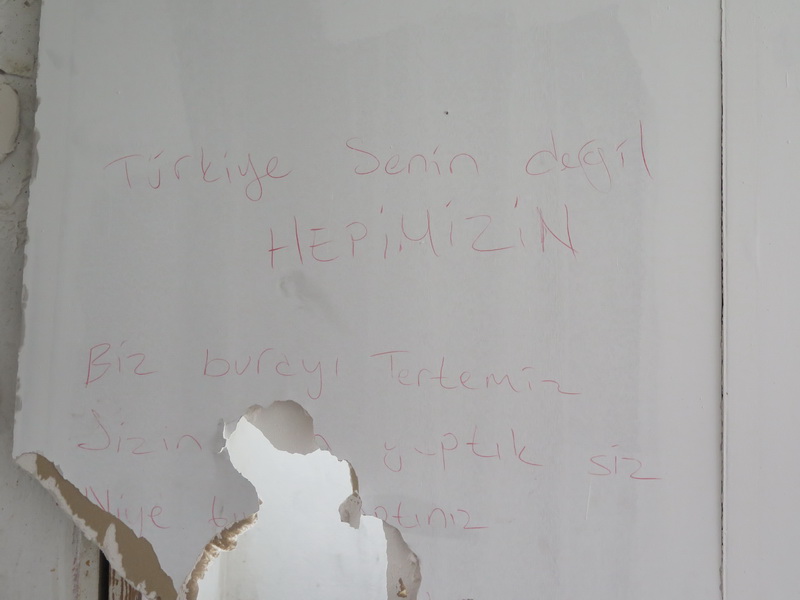 Türkiye Senin değil
HEPiMiZiN
Biz burayı Tertemiz
Sizin yaptık siz
Niye